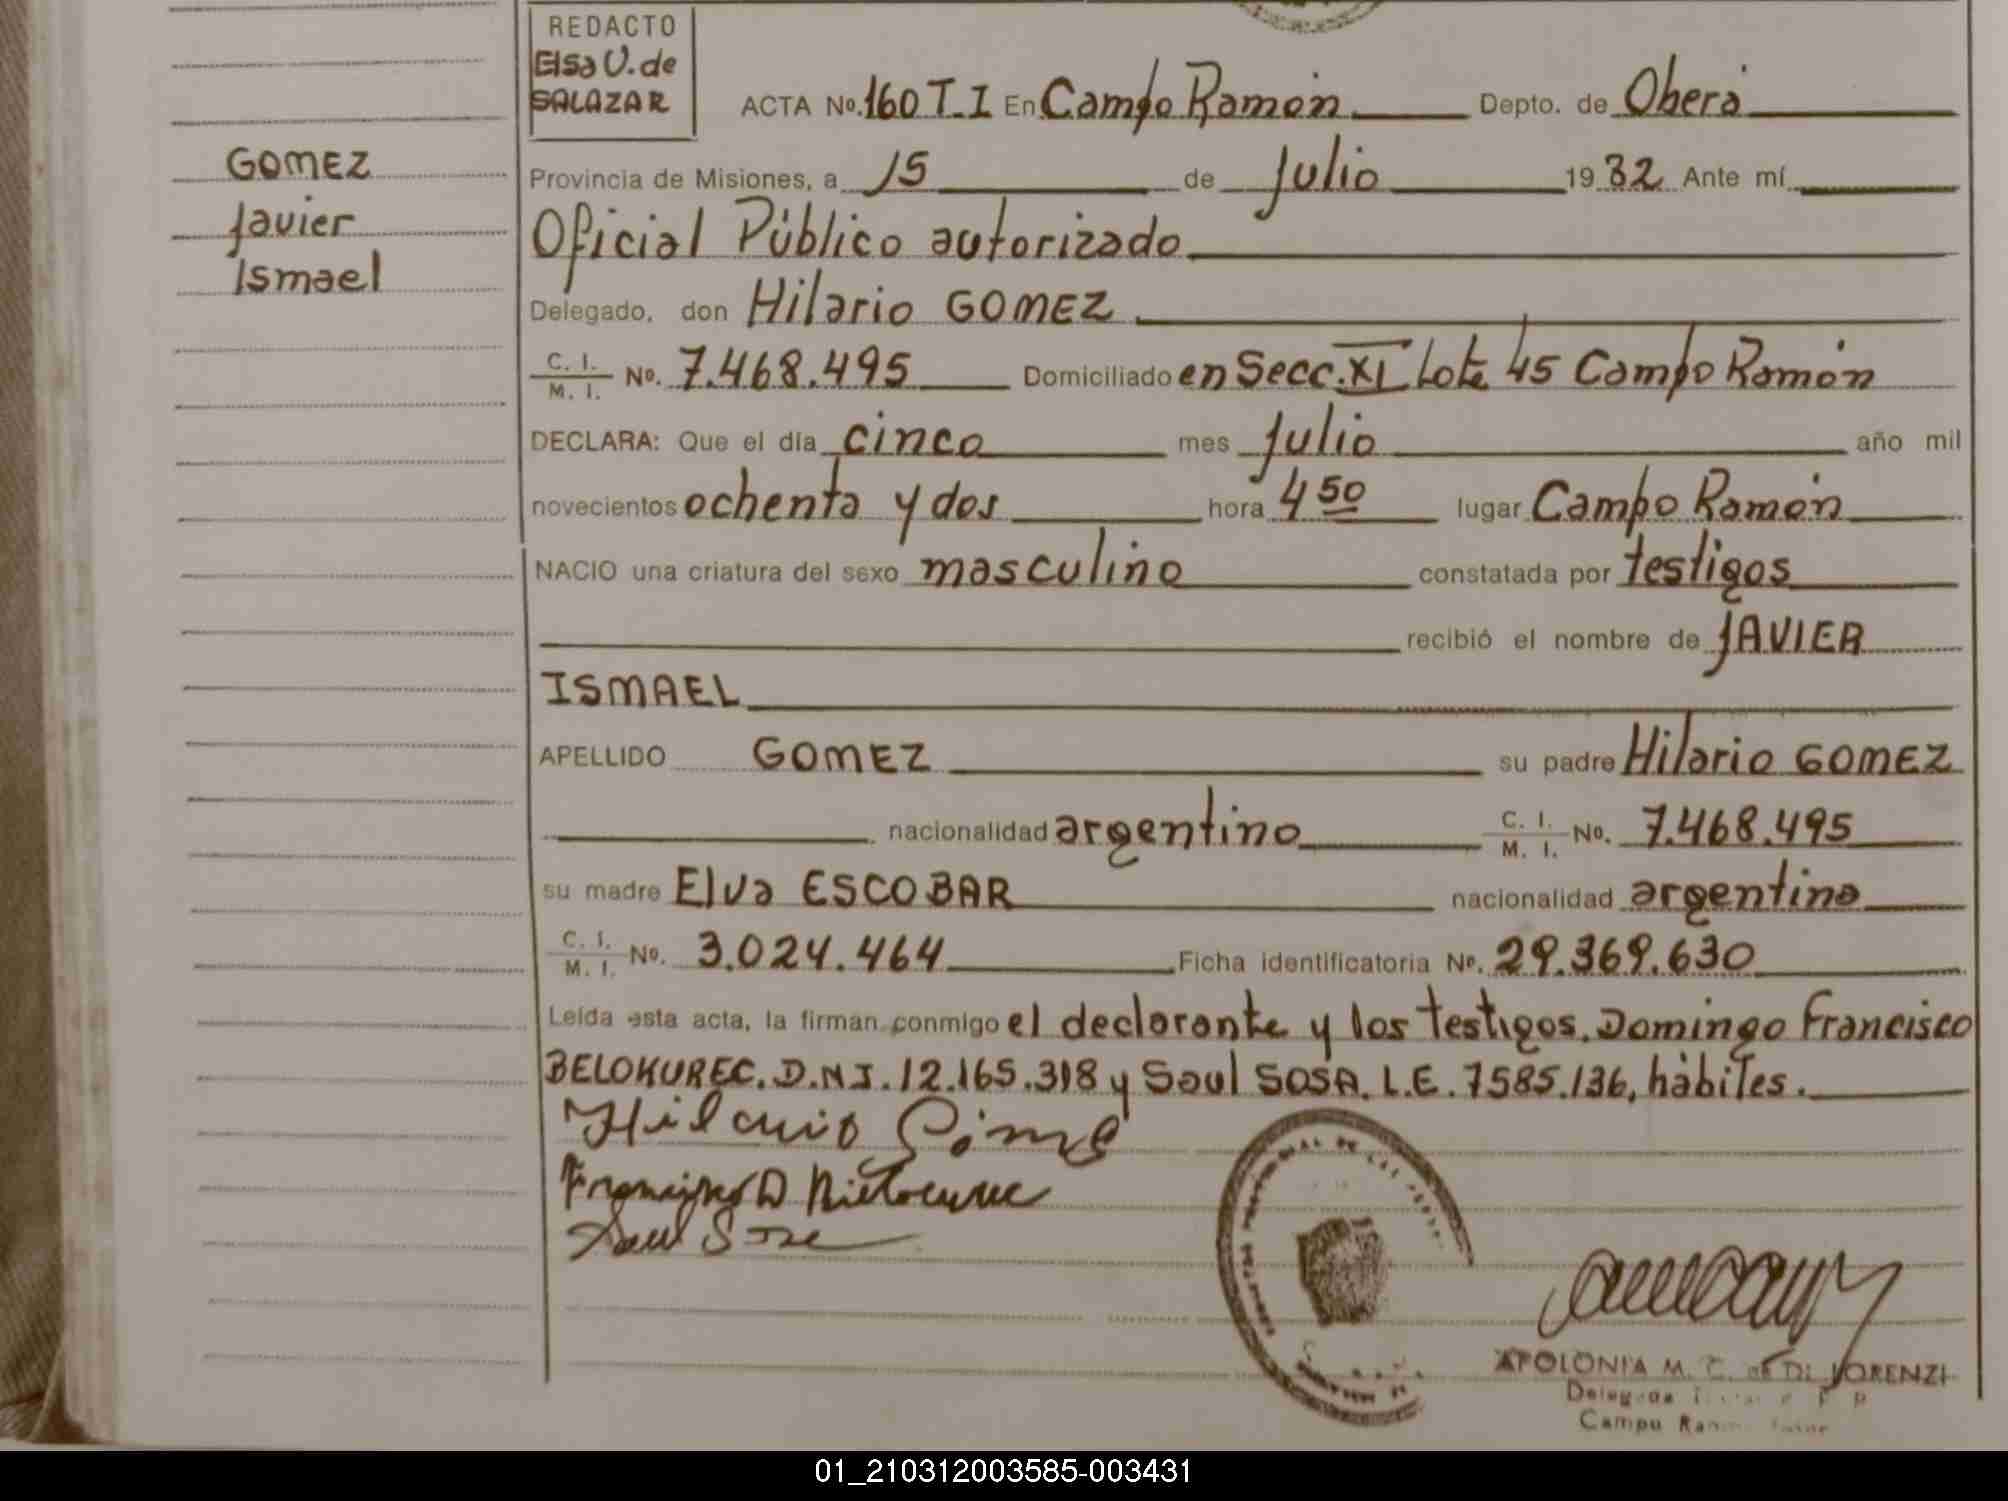 REDACTO
Elsa V. de
SALAZAR
ACTA Nº. 160 T-I En Campo Ramón Depto. de Oberá
GOMEZ
Javier
Ismael
Provincia de Misiones, a 15 de Julio 19 82 Ante mí
Oficial Público autorizado
Delegado, don Hilario GOMEZ
C. I.
M. I. Nº. 7.468.495 Domiciliado en Secc. XI Lote 45 Campo Ramón
DECLARA: Que el día cinco mes Julio año mil
novecientos ochenta y dos hora 4 50 lugar Campo Ramón
NACIO una criatura del sexo masculino constatada por testigos
recibió el nombre de JAVIER
ISMAEL
APELLIDO GOMEZ su padre Hilario GOMEZ
nacionalidad argentino C. I.
M. I. Nº. 7.468.495
su madre Elva ESCOBAR nacionalidad argentina
C. I.
M. I. Nº. 3.024.464 Ficha identificatoria Nº. 29.369.630
Leída esta acta, la firman conmigo el declarante y los testigos, Domingo Francisco
BELOKUREC. D.N.I. 12.165.318 y Saul SOSA. L.E. 7585.136, hábiles.
APOLONIA M. C. de DI LORENZI
Campo
01_210312003585-003431